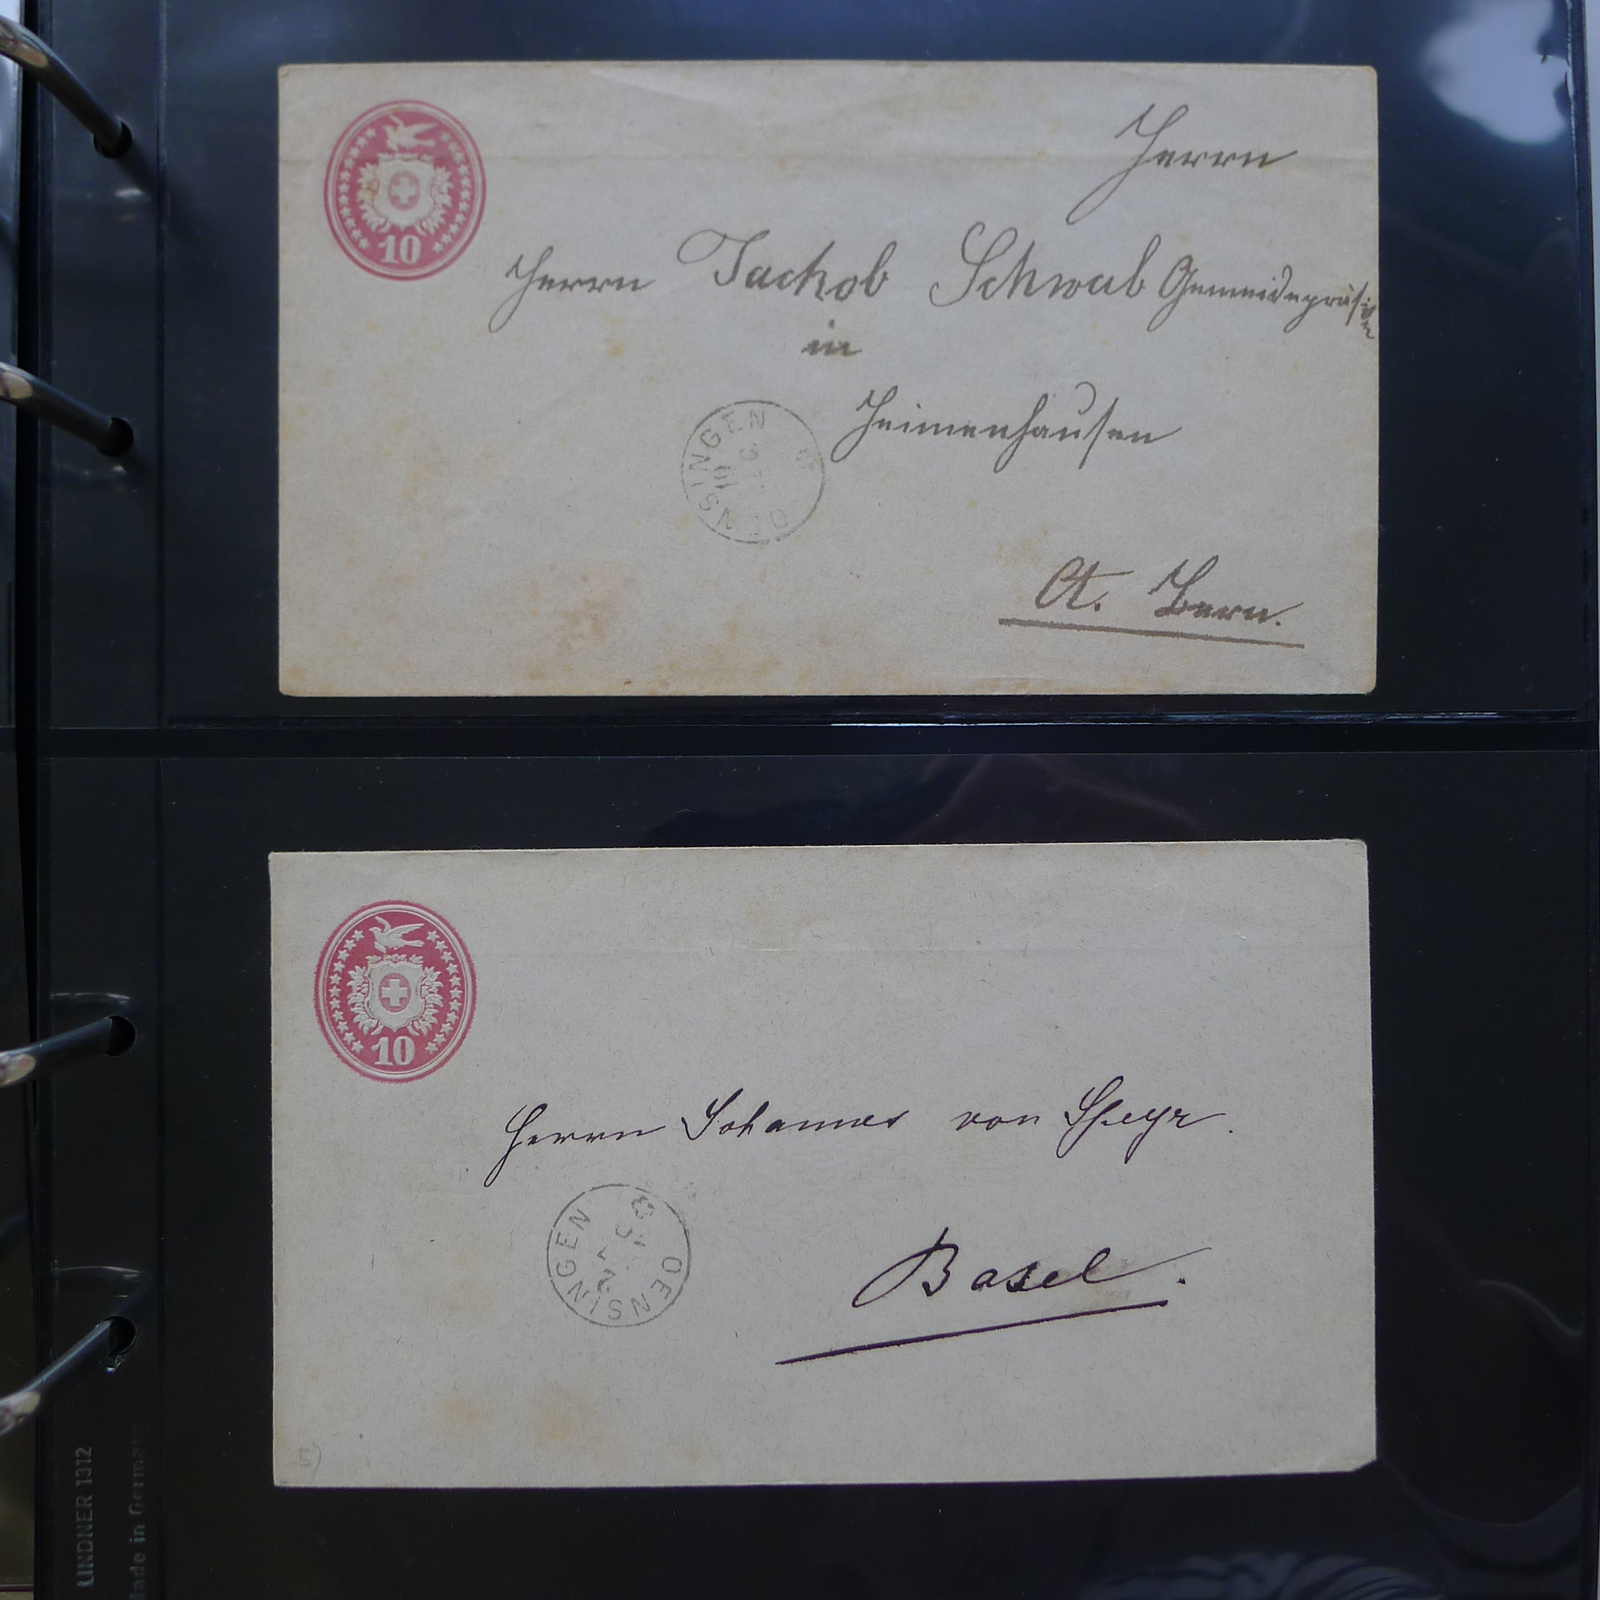 10
Herrn
Herrn Jackob Schwab Gemeindepräsiden
in
Heimenhausen
OENSINGEN
Ct. Bern.
10
Herrn Johannes von Speyr.
OENSINGEN
Basel.
LINDNER 1312
Made in German